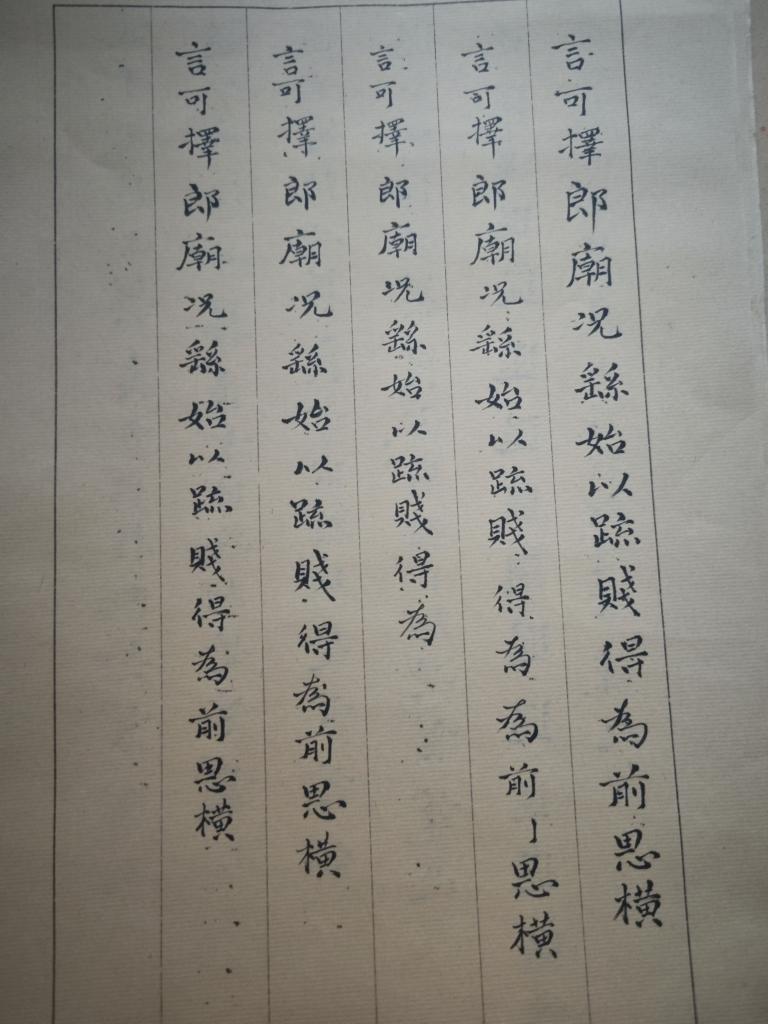 言可擇郎廟况繇始以䟽賤得為前思橫
言可擇郎廟况繇始以䟽賤得為為前思橫
言可擇郎廟况繇始以䟽賤得為
言可擇郎廟况繇始以䟽賤得為前思橫
言可擇郎廟况繇始以䟽賤得為前思橫